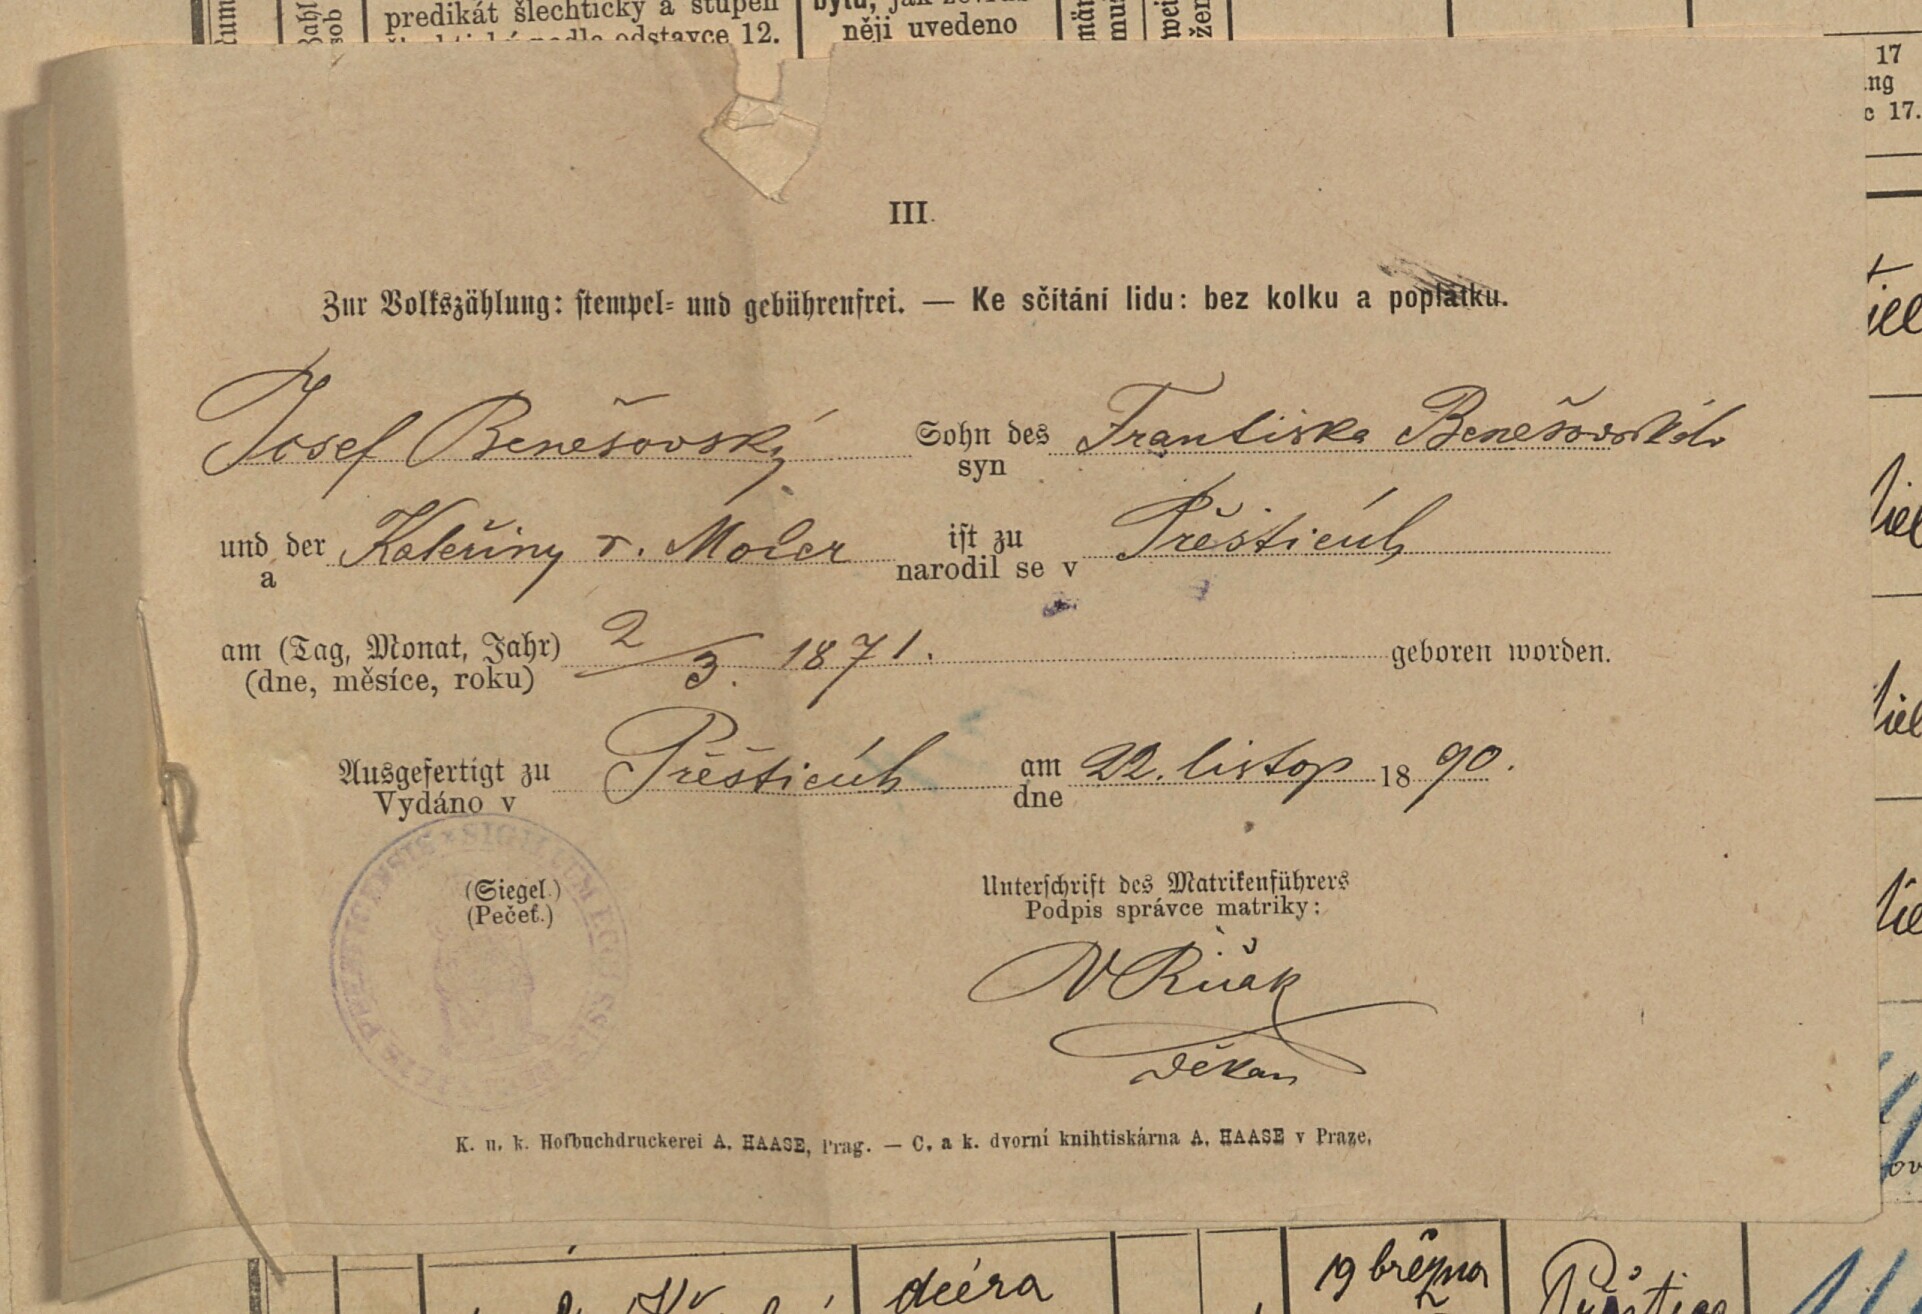 predikát šlechtický a stupeň
odstavce 12.
něji uvedeno
17
c 17.
III.
Zur Volkszählung: stempel- und gebührenfrei. — Ke sčítání lidu: bez kolku a poplatku.
Josef Benešovský Sohn des Františka Benešovského
syn
und der Kateřiny r. Moler ist zu Přešticích
a narodil se v
am (Tag, Monat, Jahr) 2/3. 1871. geboren worden.
(dne, měsíce, roku)
Ausgefertigt zu Přešticích am 22. listop 1890.
Vydáno v dne
SIGILLUM
(Siegel.) Unterschrift des Matrikenführers
(Pečeť.) Podpis správce matriky:
děkan
K. u. k. Hofbuchdruckerei A. HAASE, Prag. — C. a k. dvorní knihtiskárna A. HAASE v Praze.
dcéra 19 března